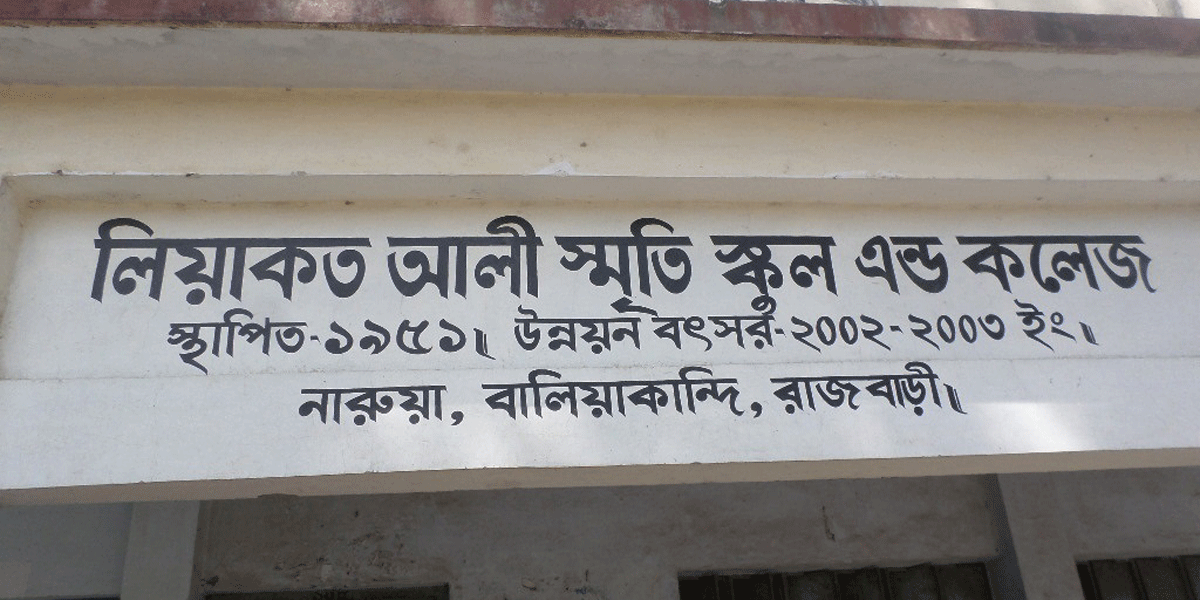 লিয়াকত আলী স্মৃতি স্কুল এন্ড কলেজ
স্থাপিত-১৯৫১॥ উন্নয়ন বৎসর-২০০২-২০০৩ ইং॥
নারুয়া, বালিয়াকান্দি, রাজবাড়ী॥